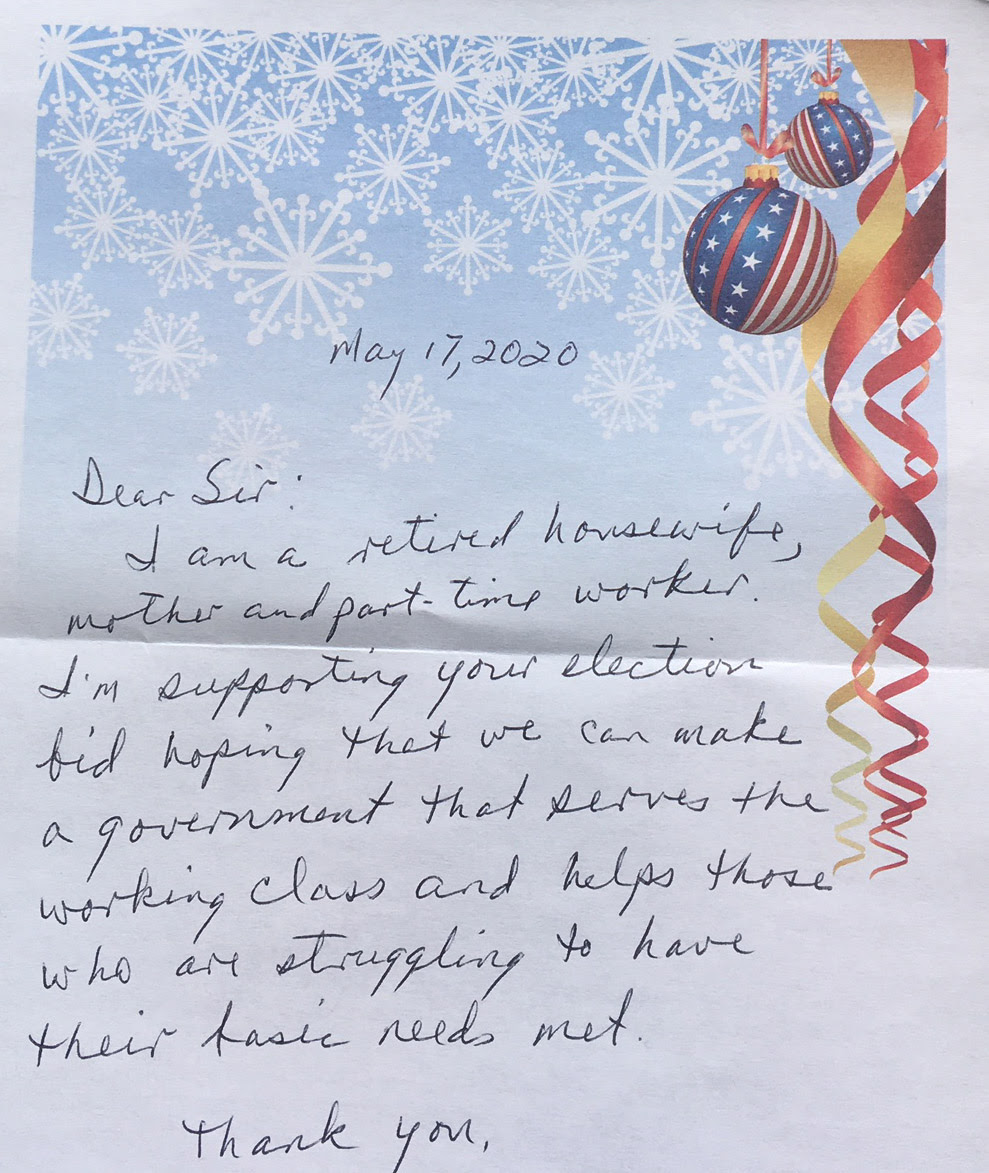 May 17, 2020
Dear Sir:
I am a retired housewife,
mother and part-time worker.
I'm supporting your election
bid hoping that we can make
a government that serves the
working class and helps those
who are struggling to have
their basic needs met.
Thank you,